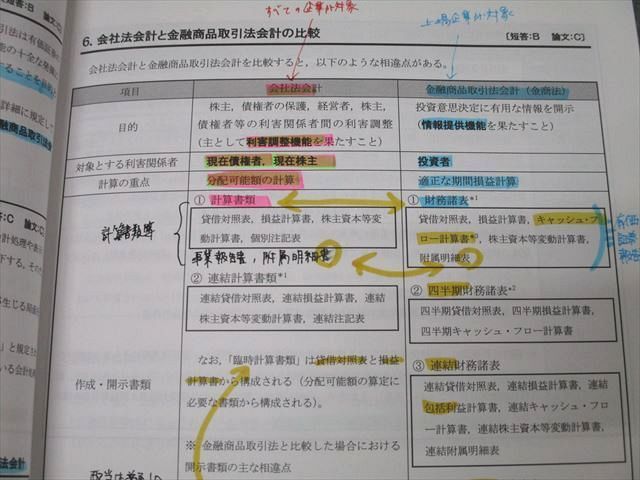 すべての企業が対象
上場企業が対象
6. 会社法会計と金融商品取引法会計の比較
[短答:B 論文:C]
会社法会計と金融商品取引法会計を比較すると、以下のような相違点がある。
項目
会社法会計
金融商品取引法会計（金商法）
目的
株主，債権者の保護，経営者，株主，
債権者等の利害関係者間の利害調整
（主として利害調整機能を果たすこと）
投資意思決定に有用な情報を開示
（情報提供機能を果たすこと）
対象とする利害関係者
現在債権者，現在株主
投資者
計算の重点
分配可能額の計算
適正な期間損益計算
作成・開示書類
計算書類等
① 計算書類
貸借対照表，損益計算書，株主資本等変
動計算書，個別注記表
事業報告書，附属明細書
② 連結計算書類*1
連結貸借対照表，連結損益計算書，連結
株主資本等変動計算書，連結注記表
なお，「臨時計算書類」は貸借対照表と損益
計算書から構成される（分配可能額の算定に
必要な書類から構成される）。
※ 金融商品取引法と比較した場合における
開示書類の主な相違点
① 財務諸表*1
貸借対照表，損益計算書，キャッシュ・フ
ロー計算書*3，株主資本等変動計算書，
附属明細表
② 四半期財務諸表*2
四半期貸借対照表，四半期損益計算書，
四半期キャッシュ・フロー計算書
③ 連結財務諸表
連結貸借対照表，連結損益計算書，連結
包括利益計算書，連結キャッシュ・フロ
ー計算書，連結株主資本等変動計算書，
連結附属明細表
短答:B 論文:C
引法は有価証
の十全な発揮に
することを目的と
詳細に規定して
金融商品取引法
:C 論文:C
」と規定
いる会計処
法会計